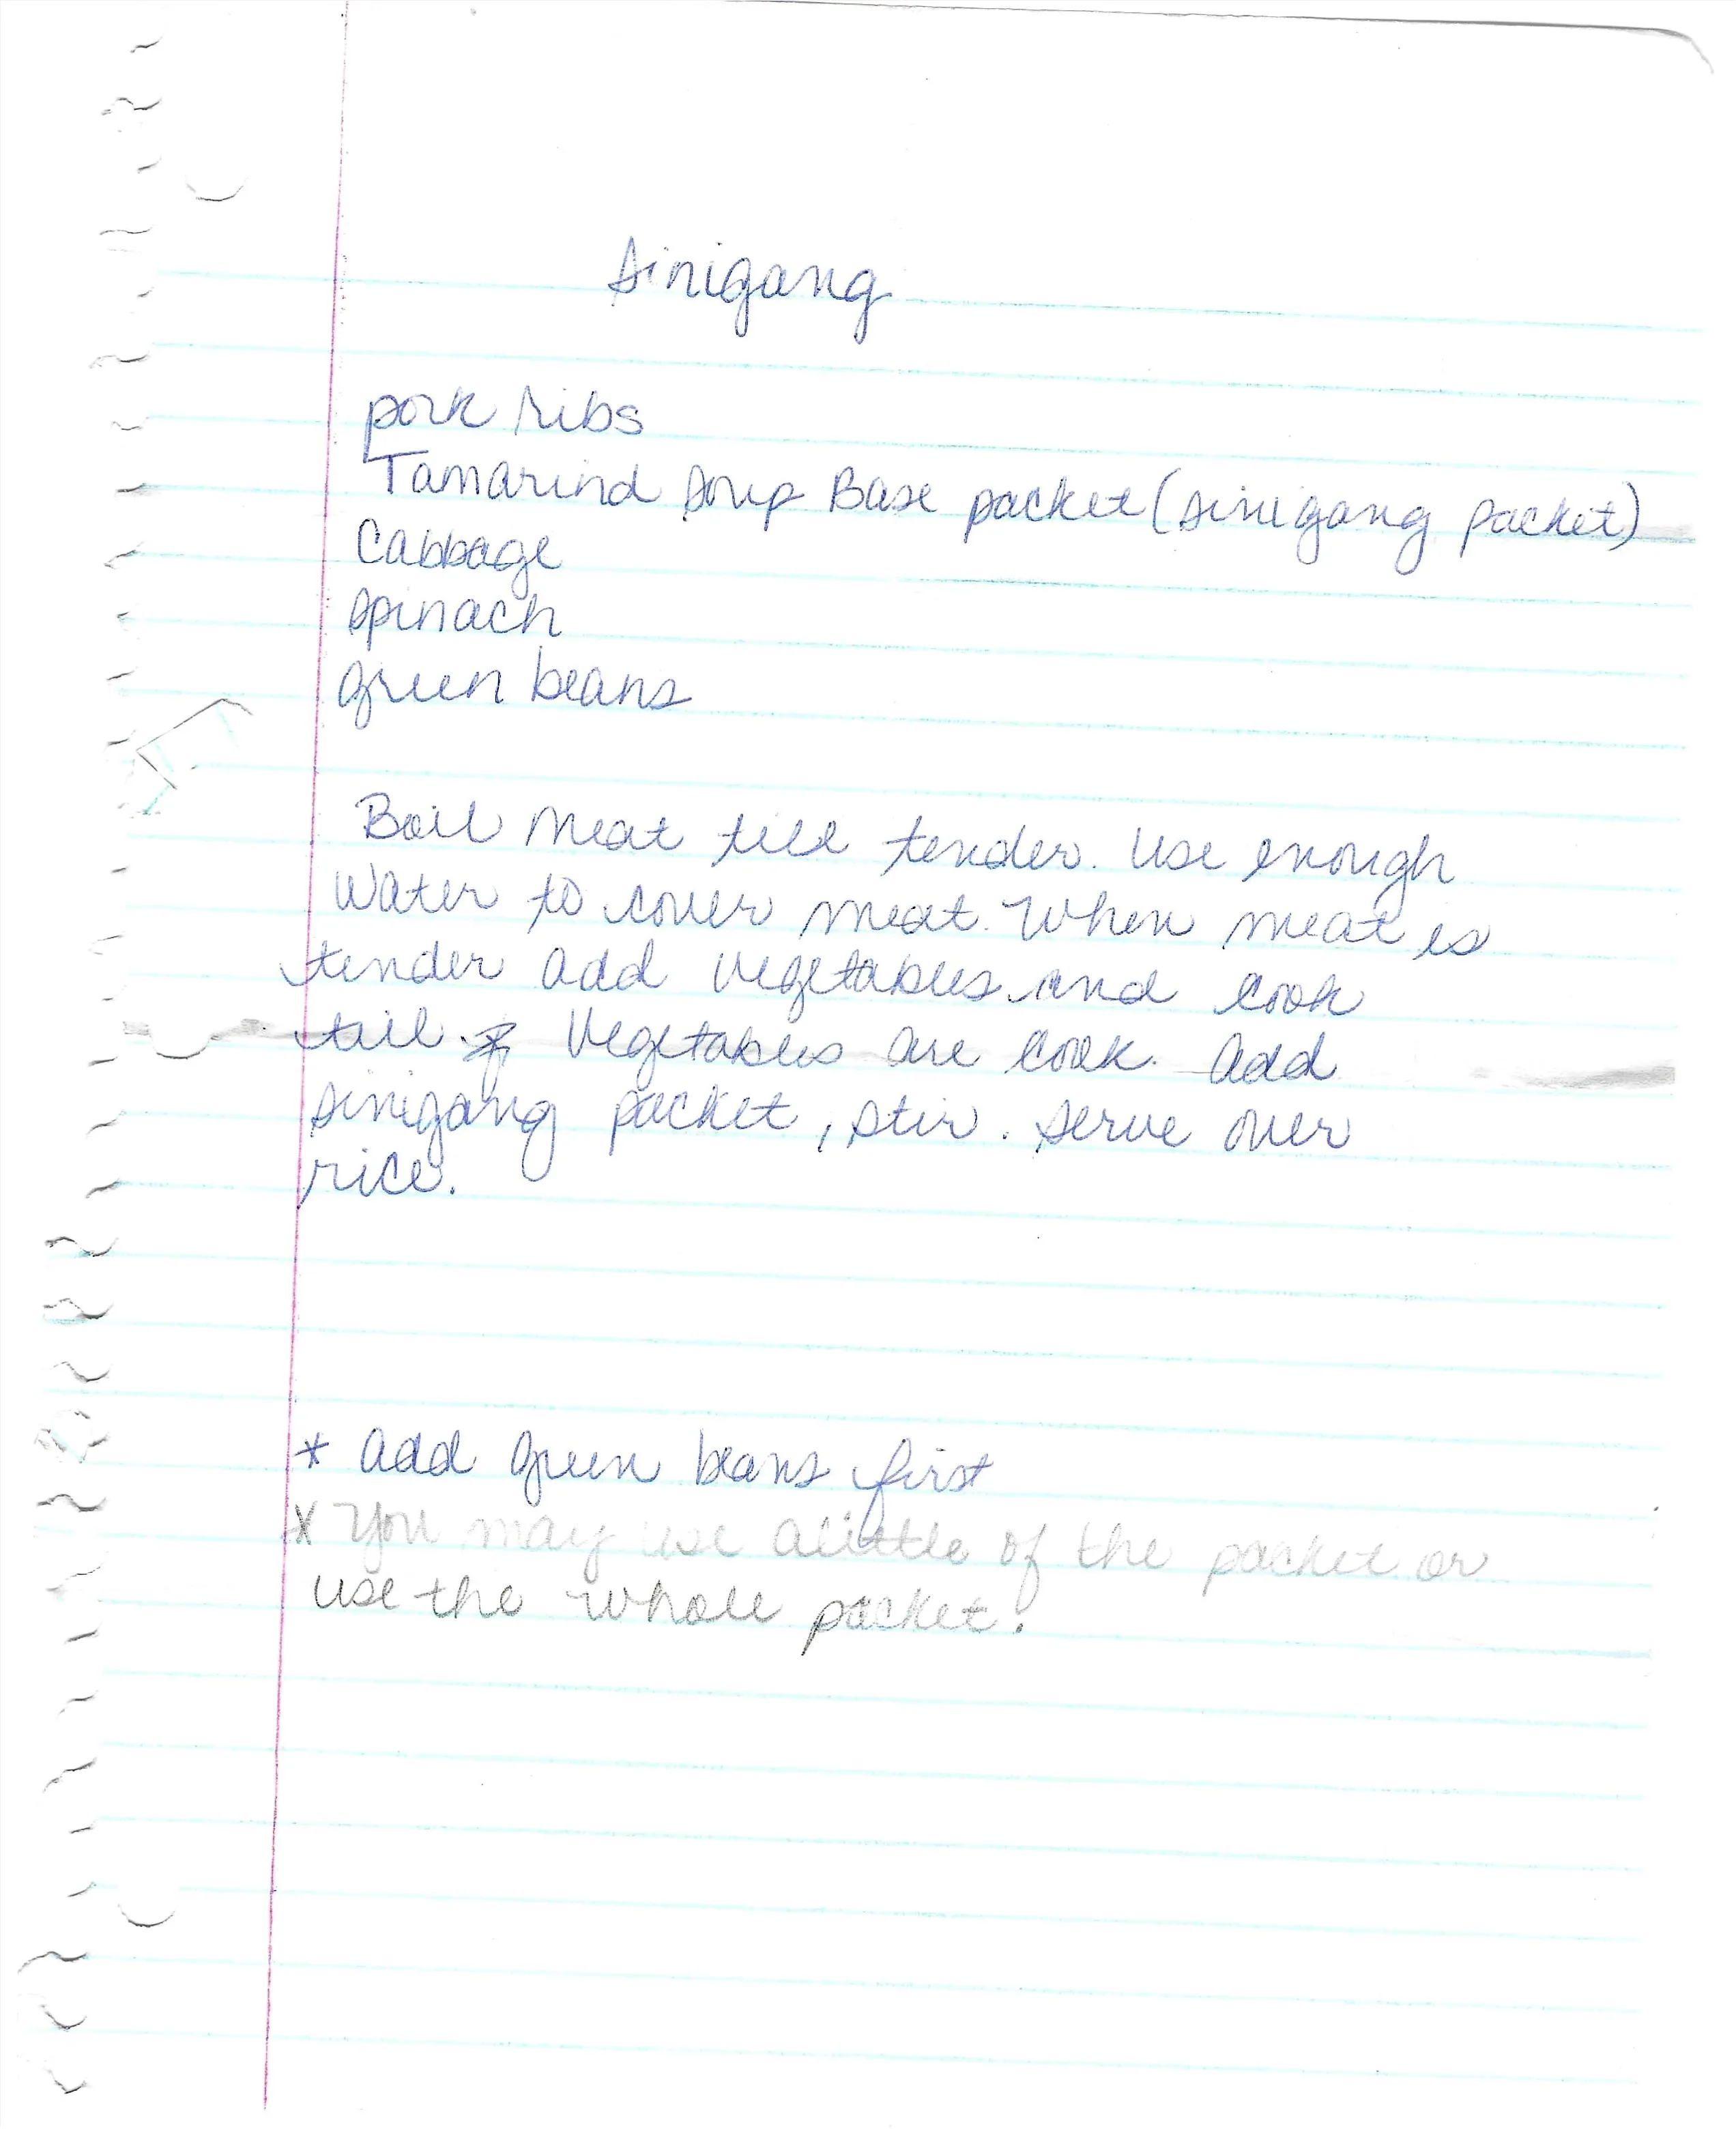 Sinigang
pork ribs
Tamarind Soup Base packet (sinigang packet)
Cabbage
spinach
green beans
Boil meat till tender. Use enough
water to cover meat. When meat is
tender add vegetables and cook
till * vegetables are cook. Add
sinigang packet, stir. Serve over
rice.
* Add green beans first
* You may use alittle of the packet or
use the whole packet.